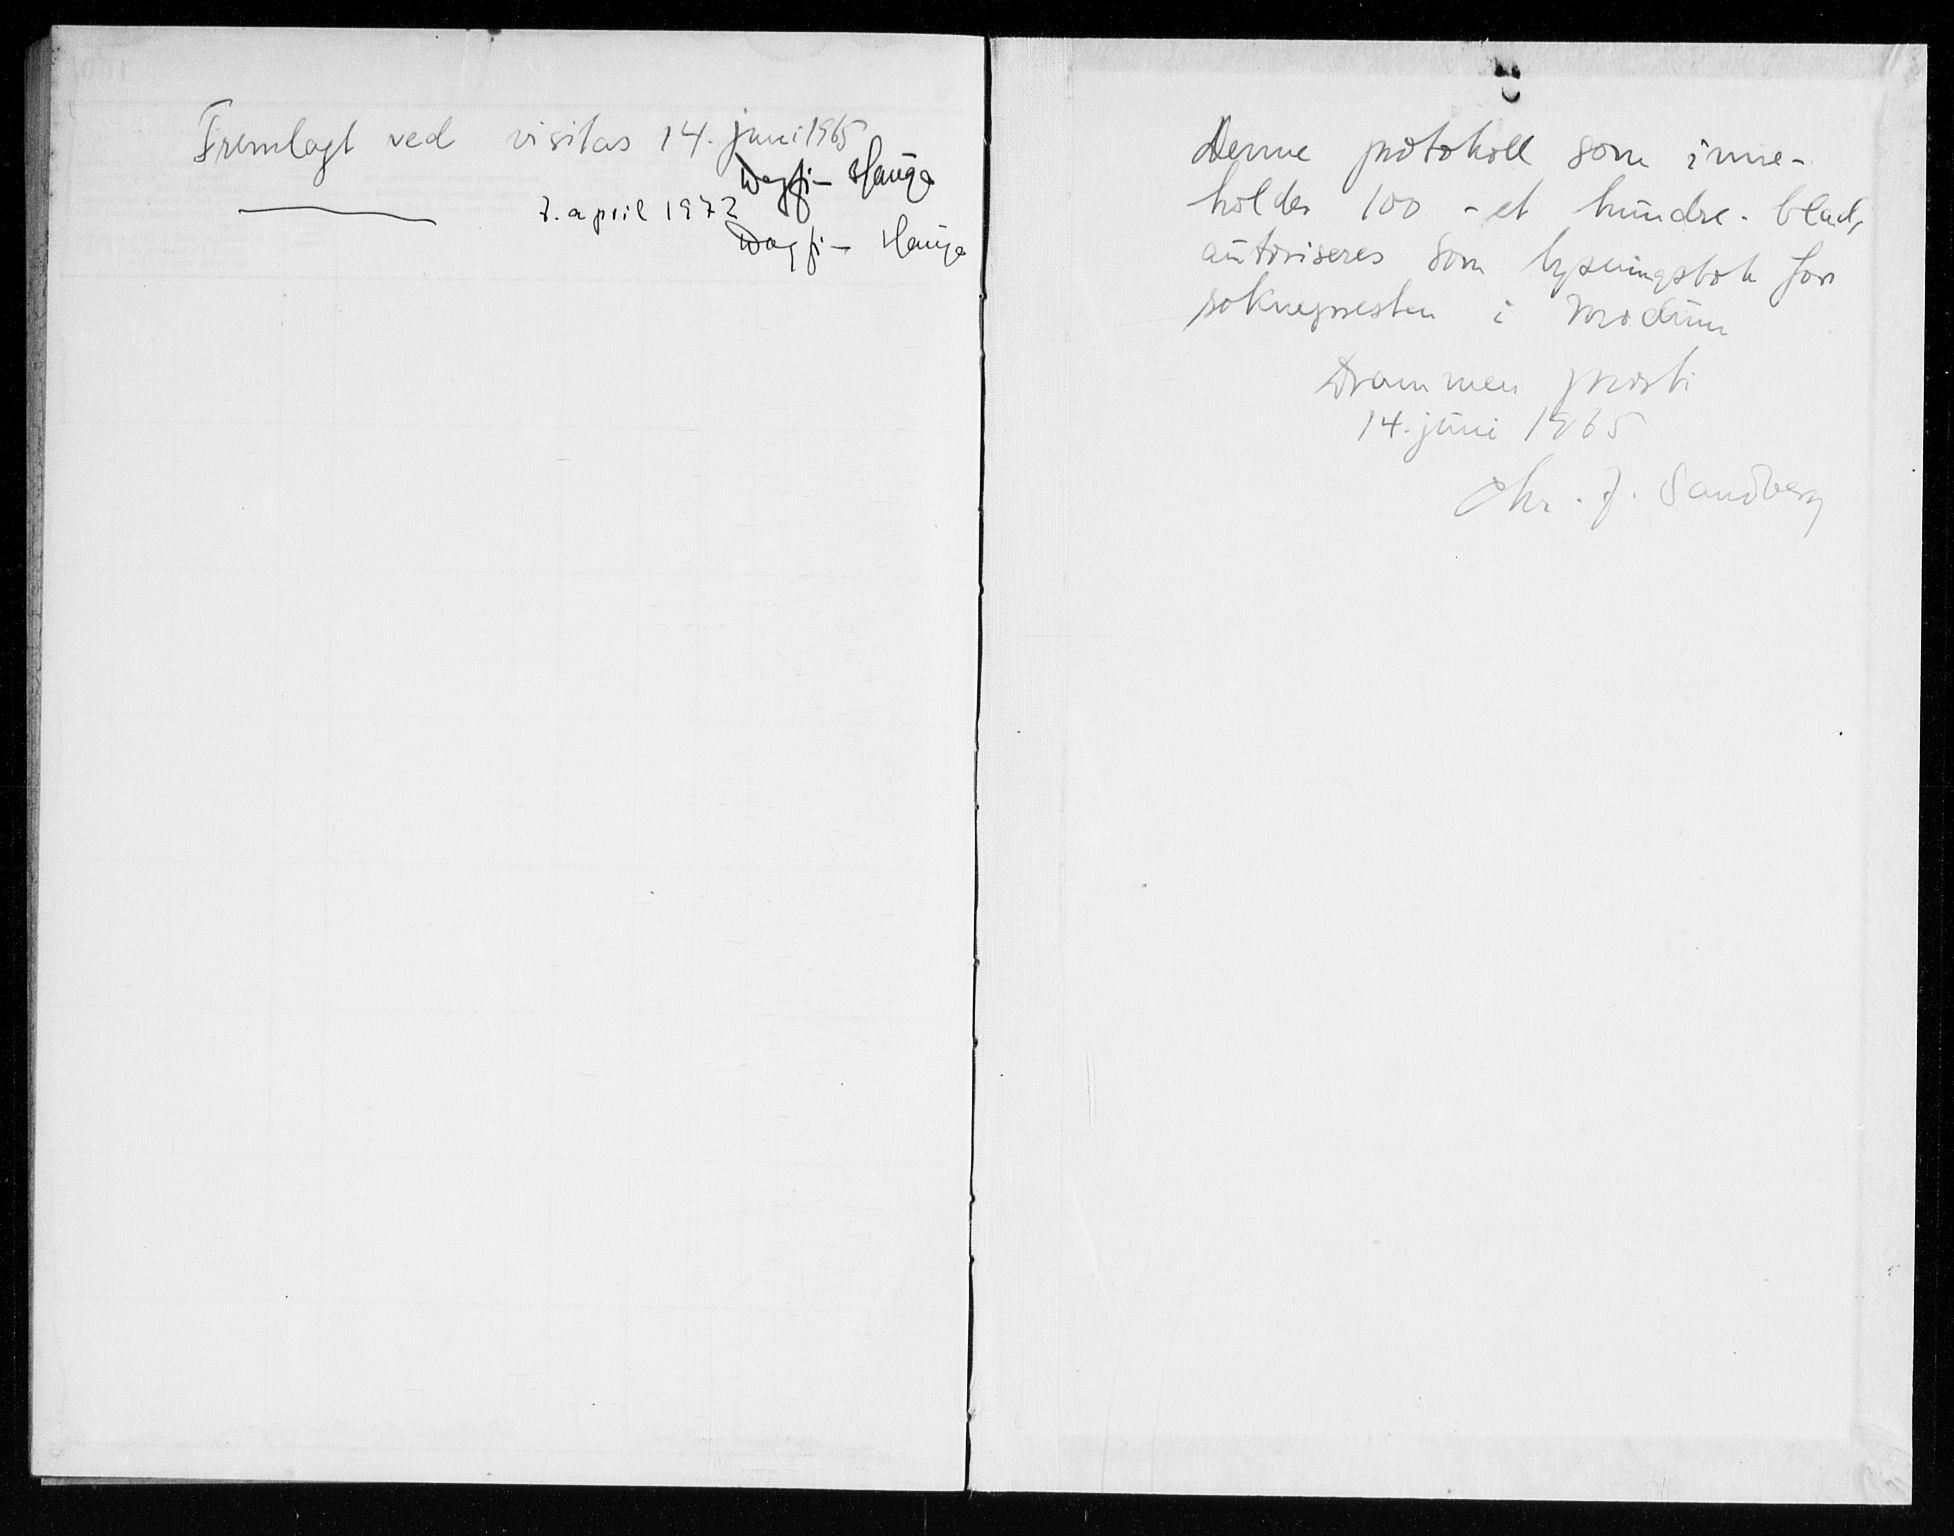 Fremlagt ved visitas 14. juni 1965
Dagfi– Hauge
7. april 1972
Dagfi– Hauge
Denne protokoll som inne-
holder 100 - et hundre - blad,
autoriseres som lysningsbok for
soknepresten i Modum
Drammen prosti
14. juni 1965
Chr. J. Sandberg